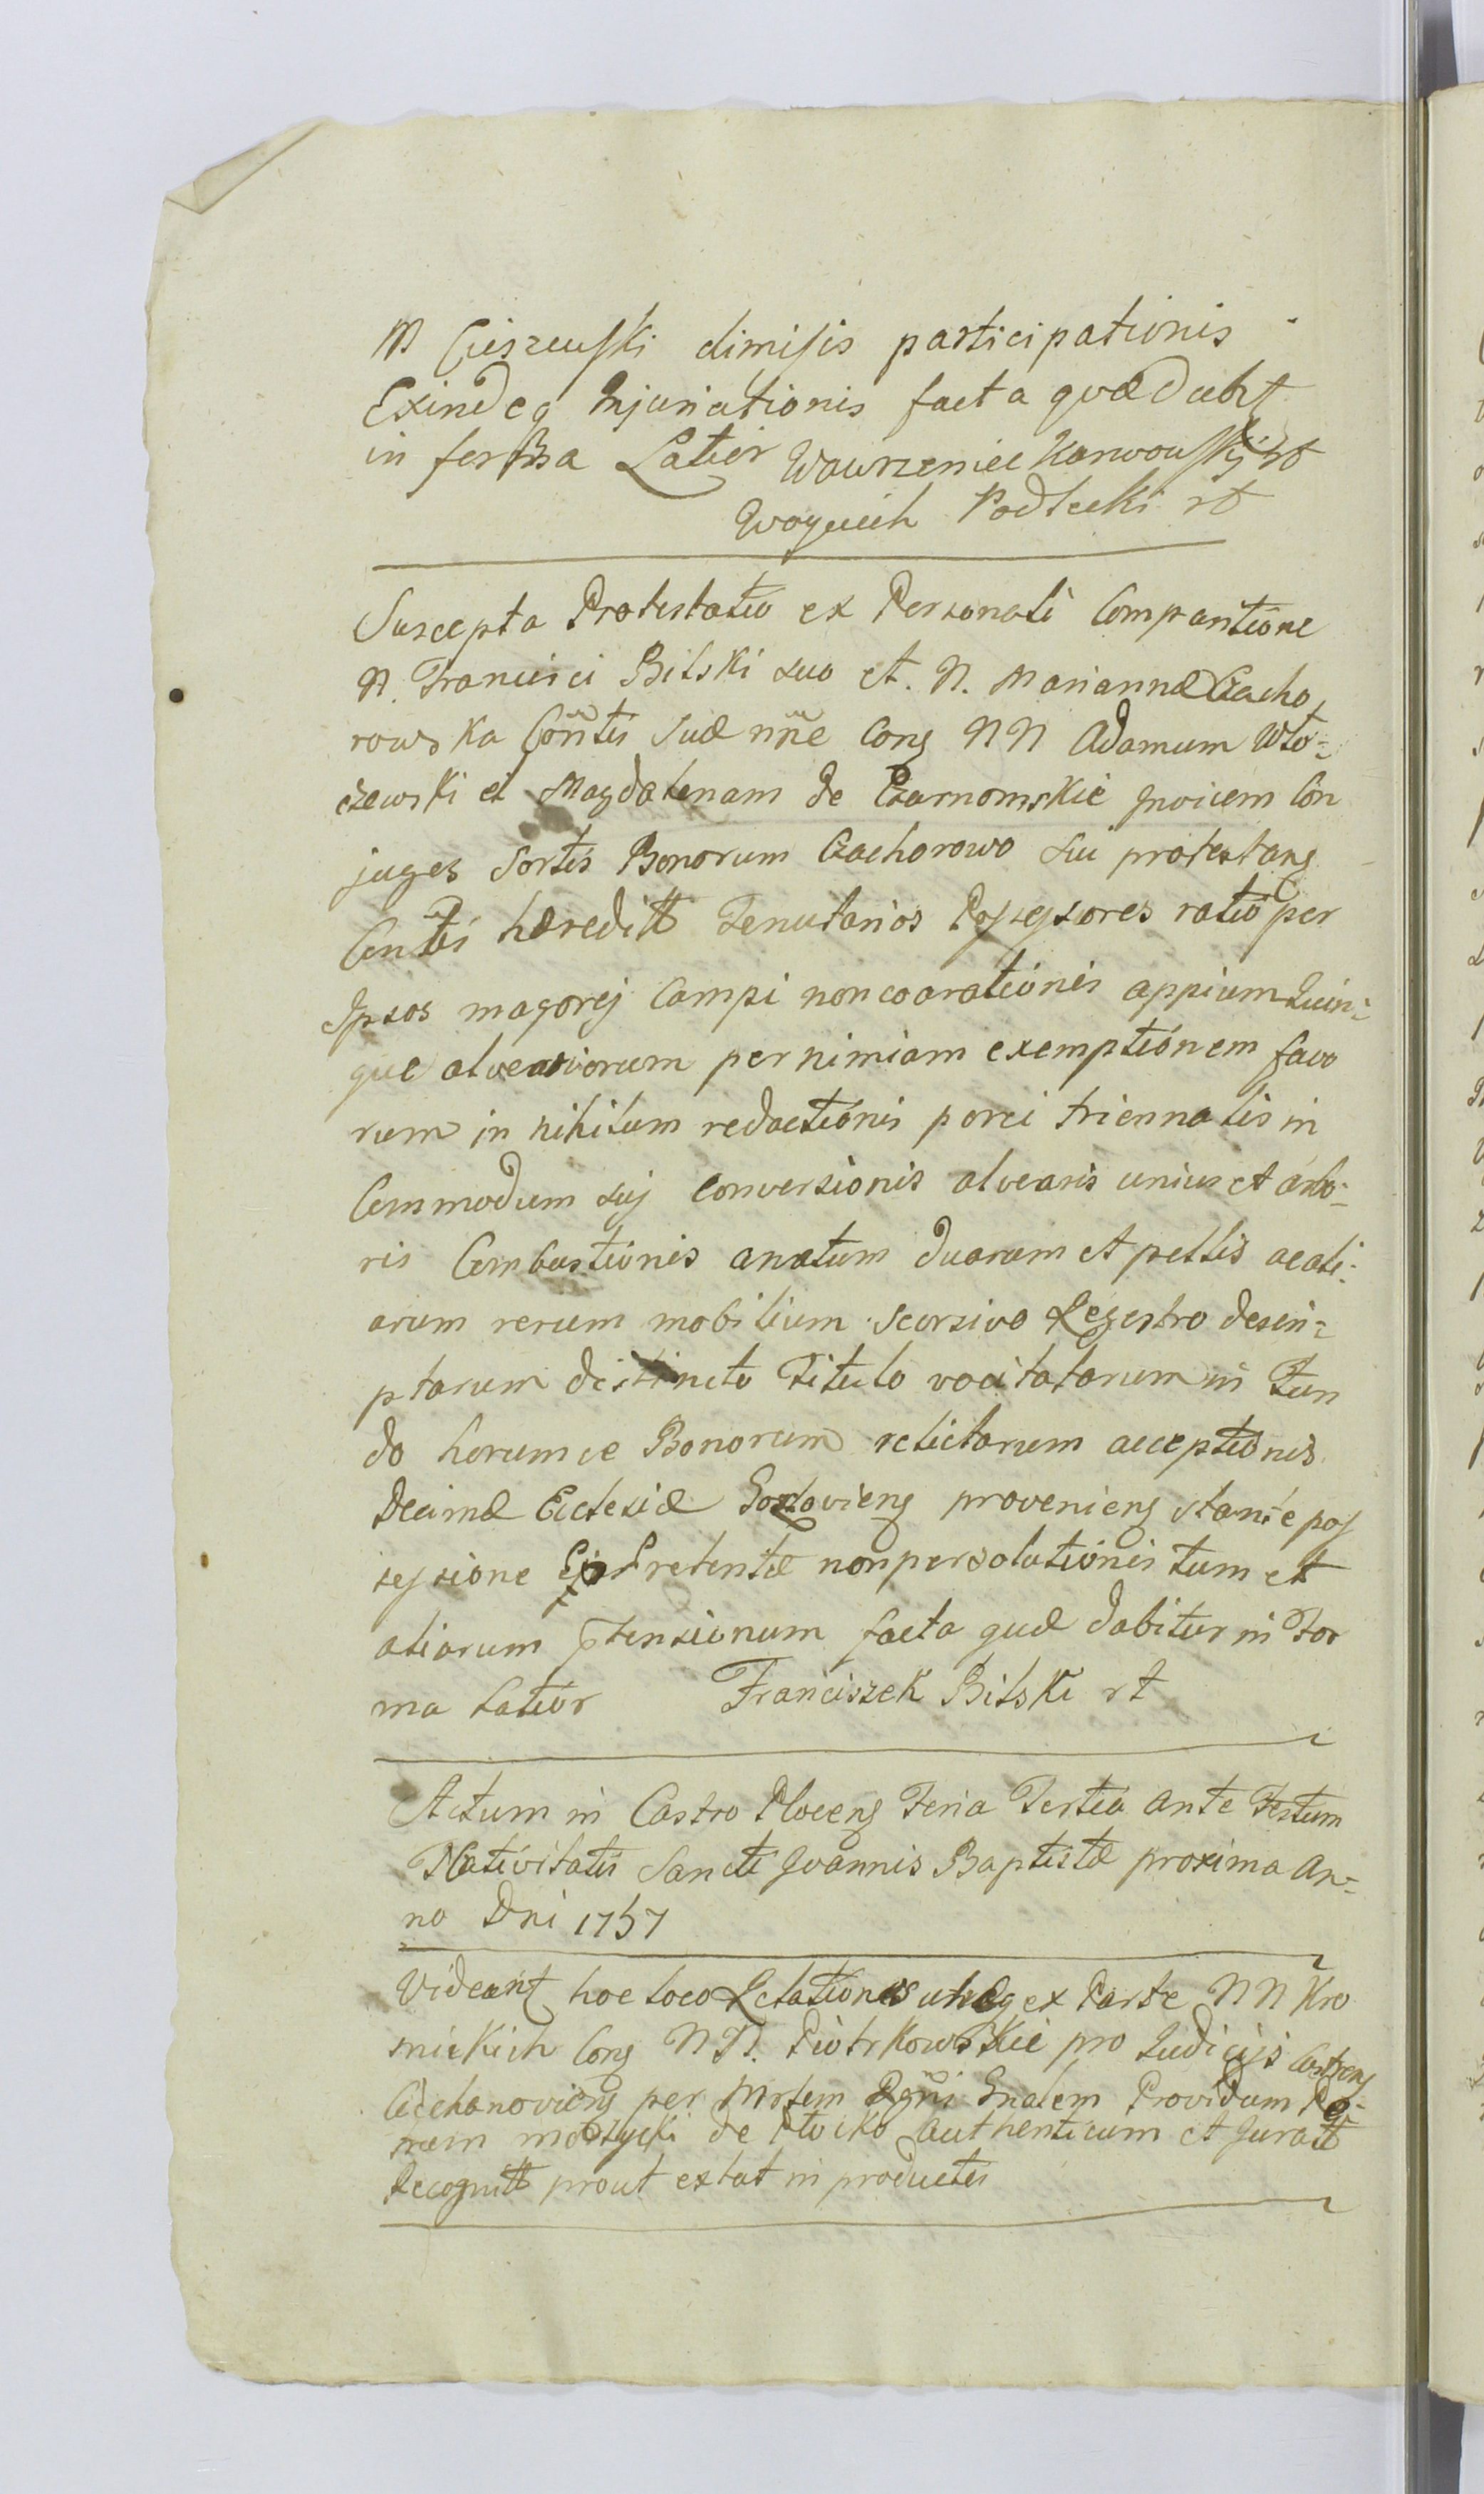 N Cieszewski dimisis participationis
Exindeq Injuriationis facta quæ dabit
in forma Latior Wawrzeniec Karwowskij rt
Woyciech Podlecki rt
Suscepta Protestatio ex Personali Comparitione
N. Francisci Bilski suo et. N. Mariannæ Czacho,
rowska Contis suæ nne Cong NN Adamum Wło=
czewski et Magdalenam de Czarnomskie Invicem Con
juges Sortis Bonorum Czachorowo sui protestang
Contis hæreditt Tenutarios Possessores ratio per
Ipsos magorej Campi noncoarationis appium Quin=
que alveariorum per nimiam exemptionem favo
rum in nihilum redactionis porci triennalis in
Commodum suj conversionis alvearis unius et arbo=
ris Combustionis anatum duarum et pellis ac ali=
arum rerum mobilium seorsivo Regestro descri=
ptarum distincto Titulo vocitatarum in Fun
do horumce Bonorum relictarum acceptionis
Decimæ Ecclesiæ provenieng stante pos
sessione retentæ nonpersolutionis tum et
aliarum ptensionum facta quæ dabitur in For
ma Latior Franciszek Bilski rt
Actum in Castro Ploceng Feria Tertia ante Festum
Nativitatis Sancti Joannis Baptistæ proxima An=
no Dni 1757
Videant hoc loco ex Parte NN Kro
snickich Cong NN. Piotrkowskie pro Judicijs Castreng
Ciechanovieng per Mrtem Regni Gnalem Providum
de Płocko Authenticum et Juratt
Recognitt prout extat in productis